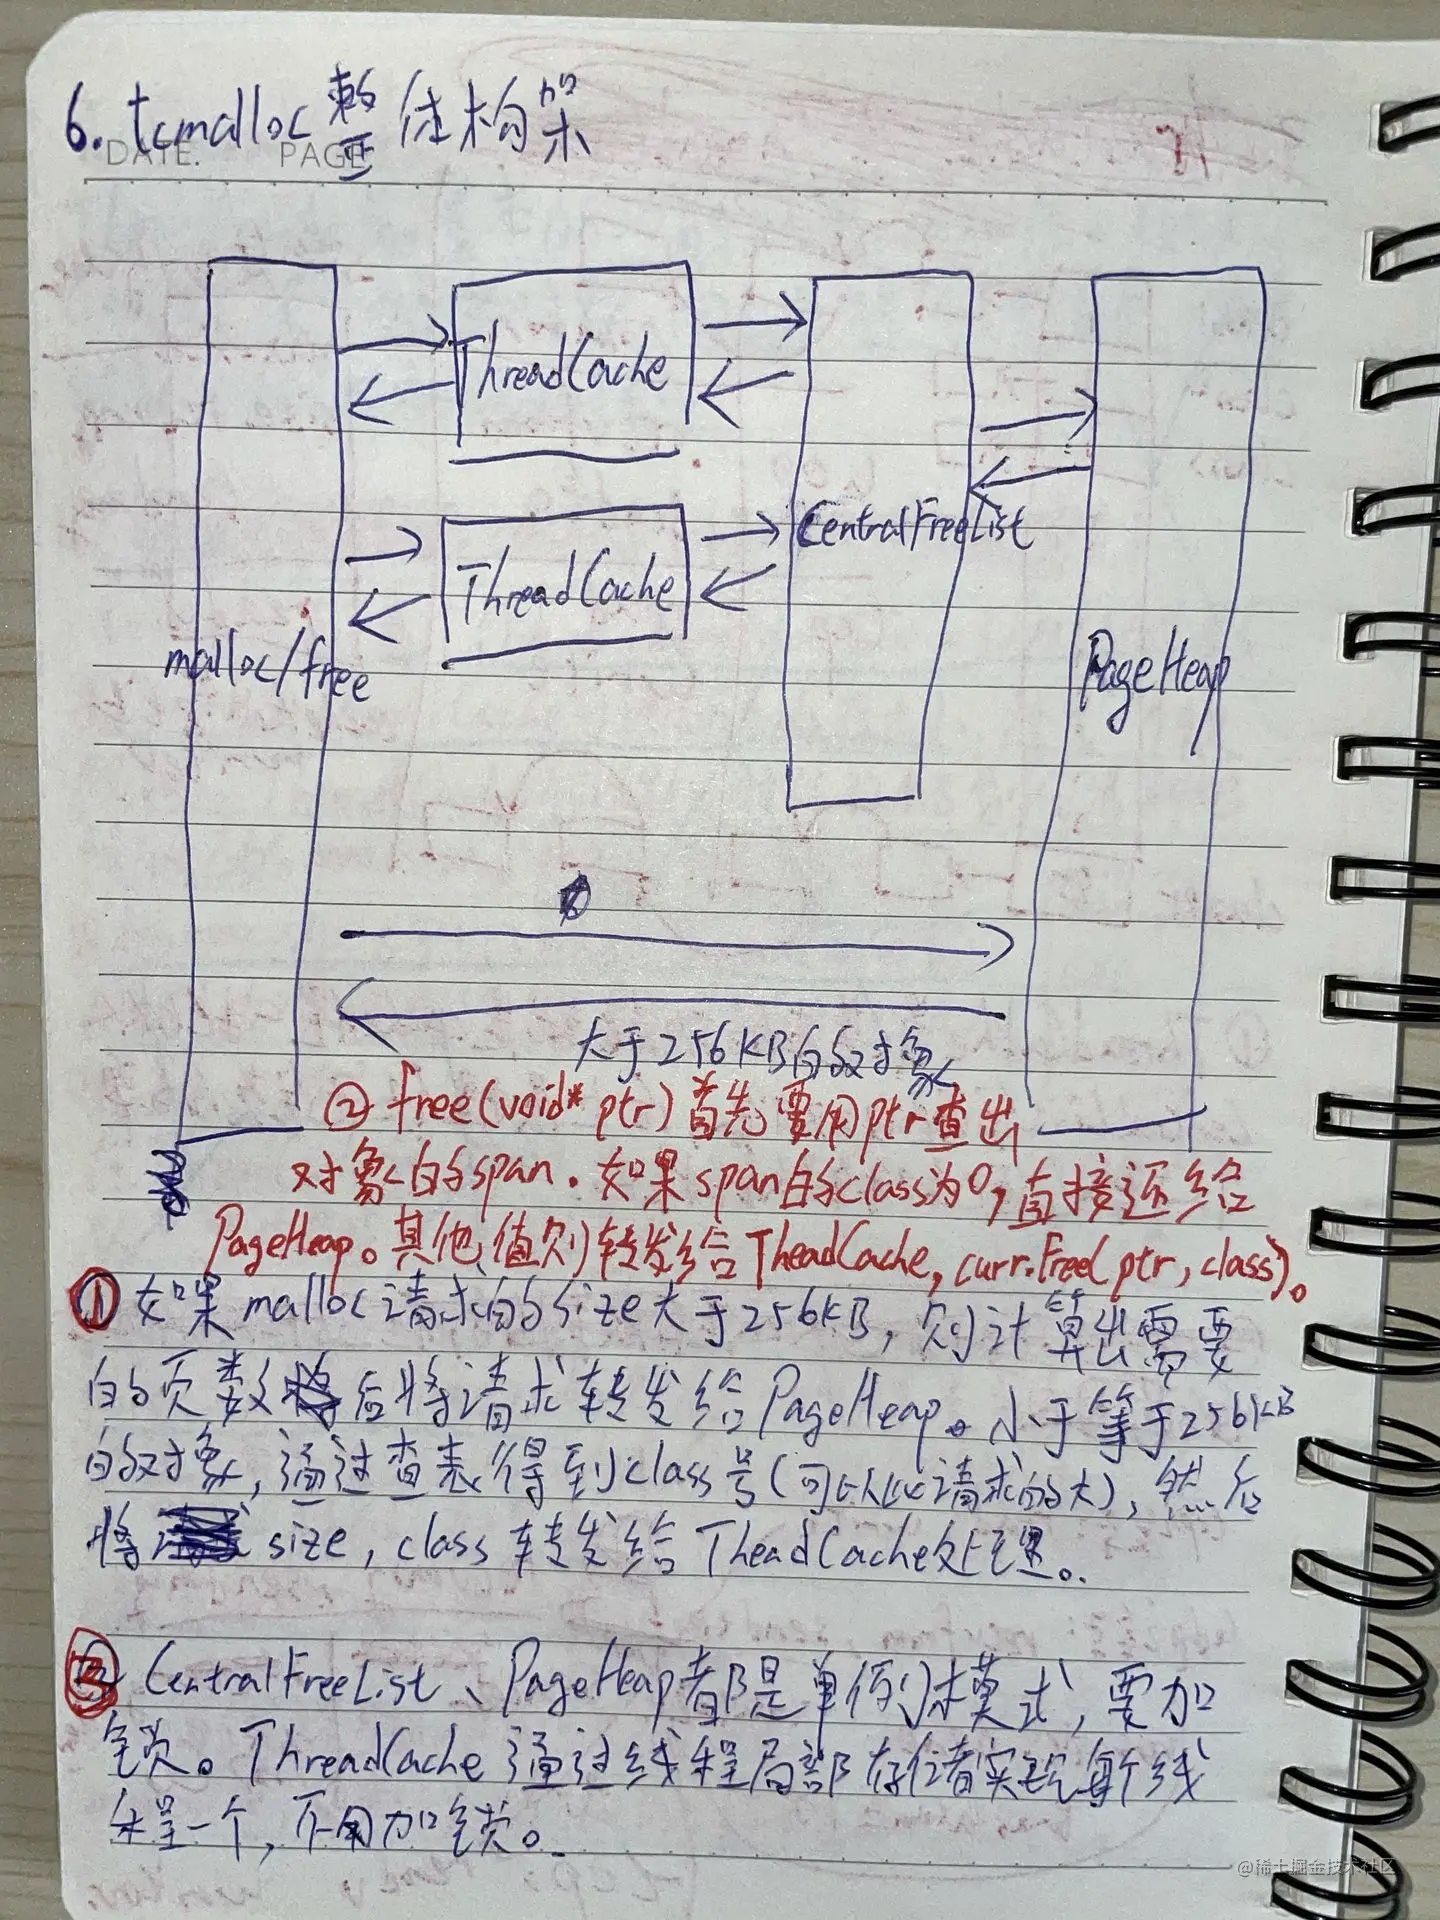 6. tcmalloc整体构架
DATE. PAGE
ThreadCache
CentralFreeList
ThreadCache
malloc/free
PageHeap
大于256KB的对象
② free(void* ptr)首先要用ptr查出
对象的span.如果span的class为0,直接还给
PageHeap。其他值则转发给TheadCache, curr.Free(ptr, class)。
① 如果malloc请求的size大于256KB,则计算出需要
的页数后将请求转发给PageHeap。小于等于256KB
的对象,通过查表得到class号(可以比请求的大),然后
将size, class转发给TheadCache处理。
③ CentralFreeList、PageHeap都是单例模式,要加
锁。ThreadCache通过线程局部存储实现每个线
程一个,不用加锁。
@稀土掘金技术社区